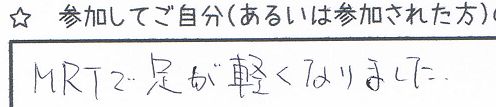 ☆ 参加してご自分(あるいは参加された方)
MRTで足が軽くなりました.